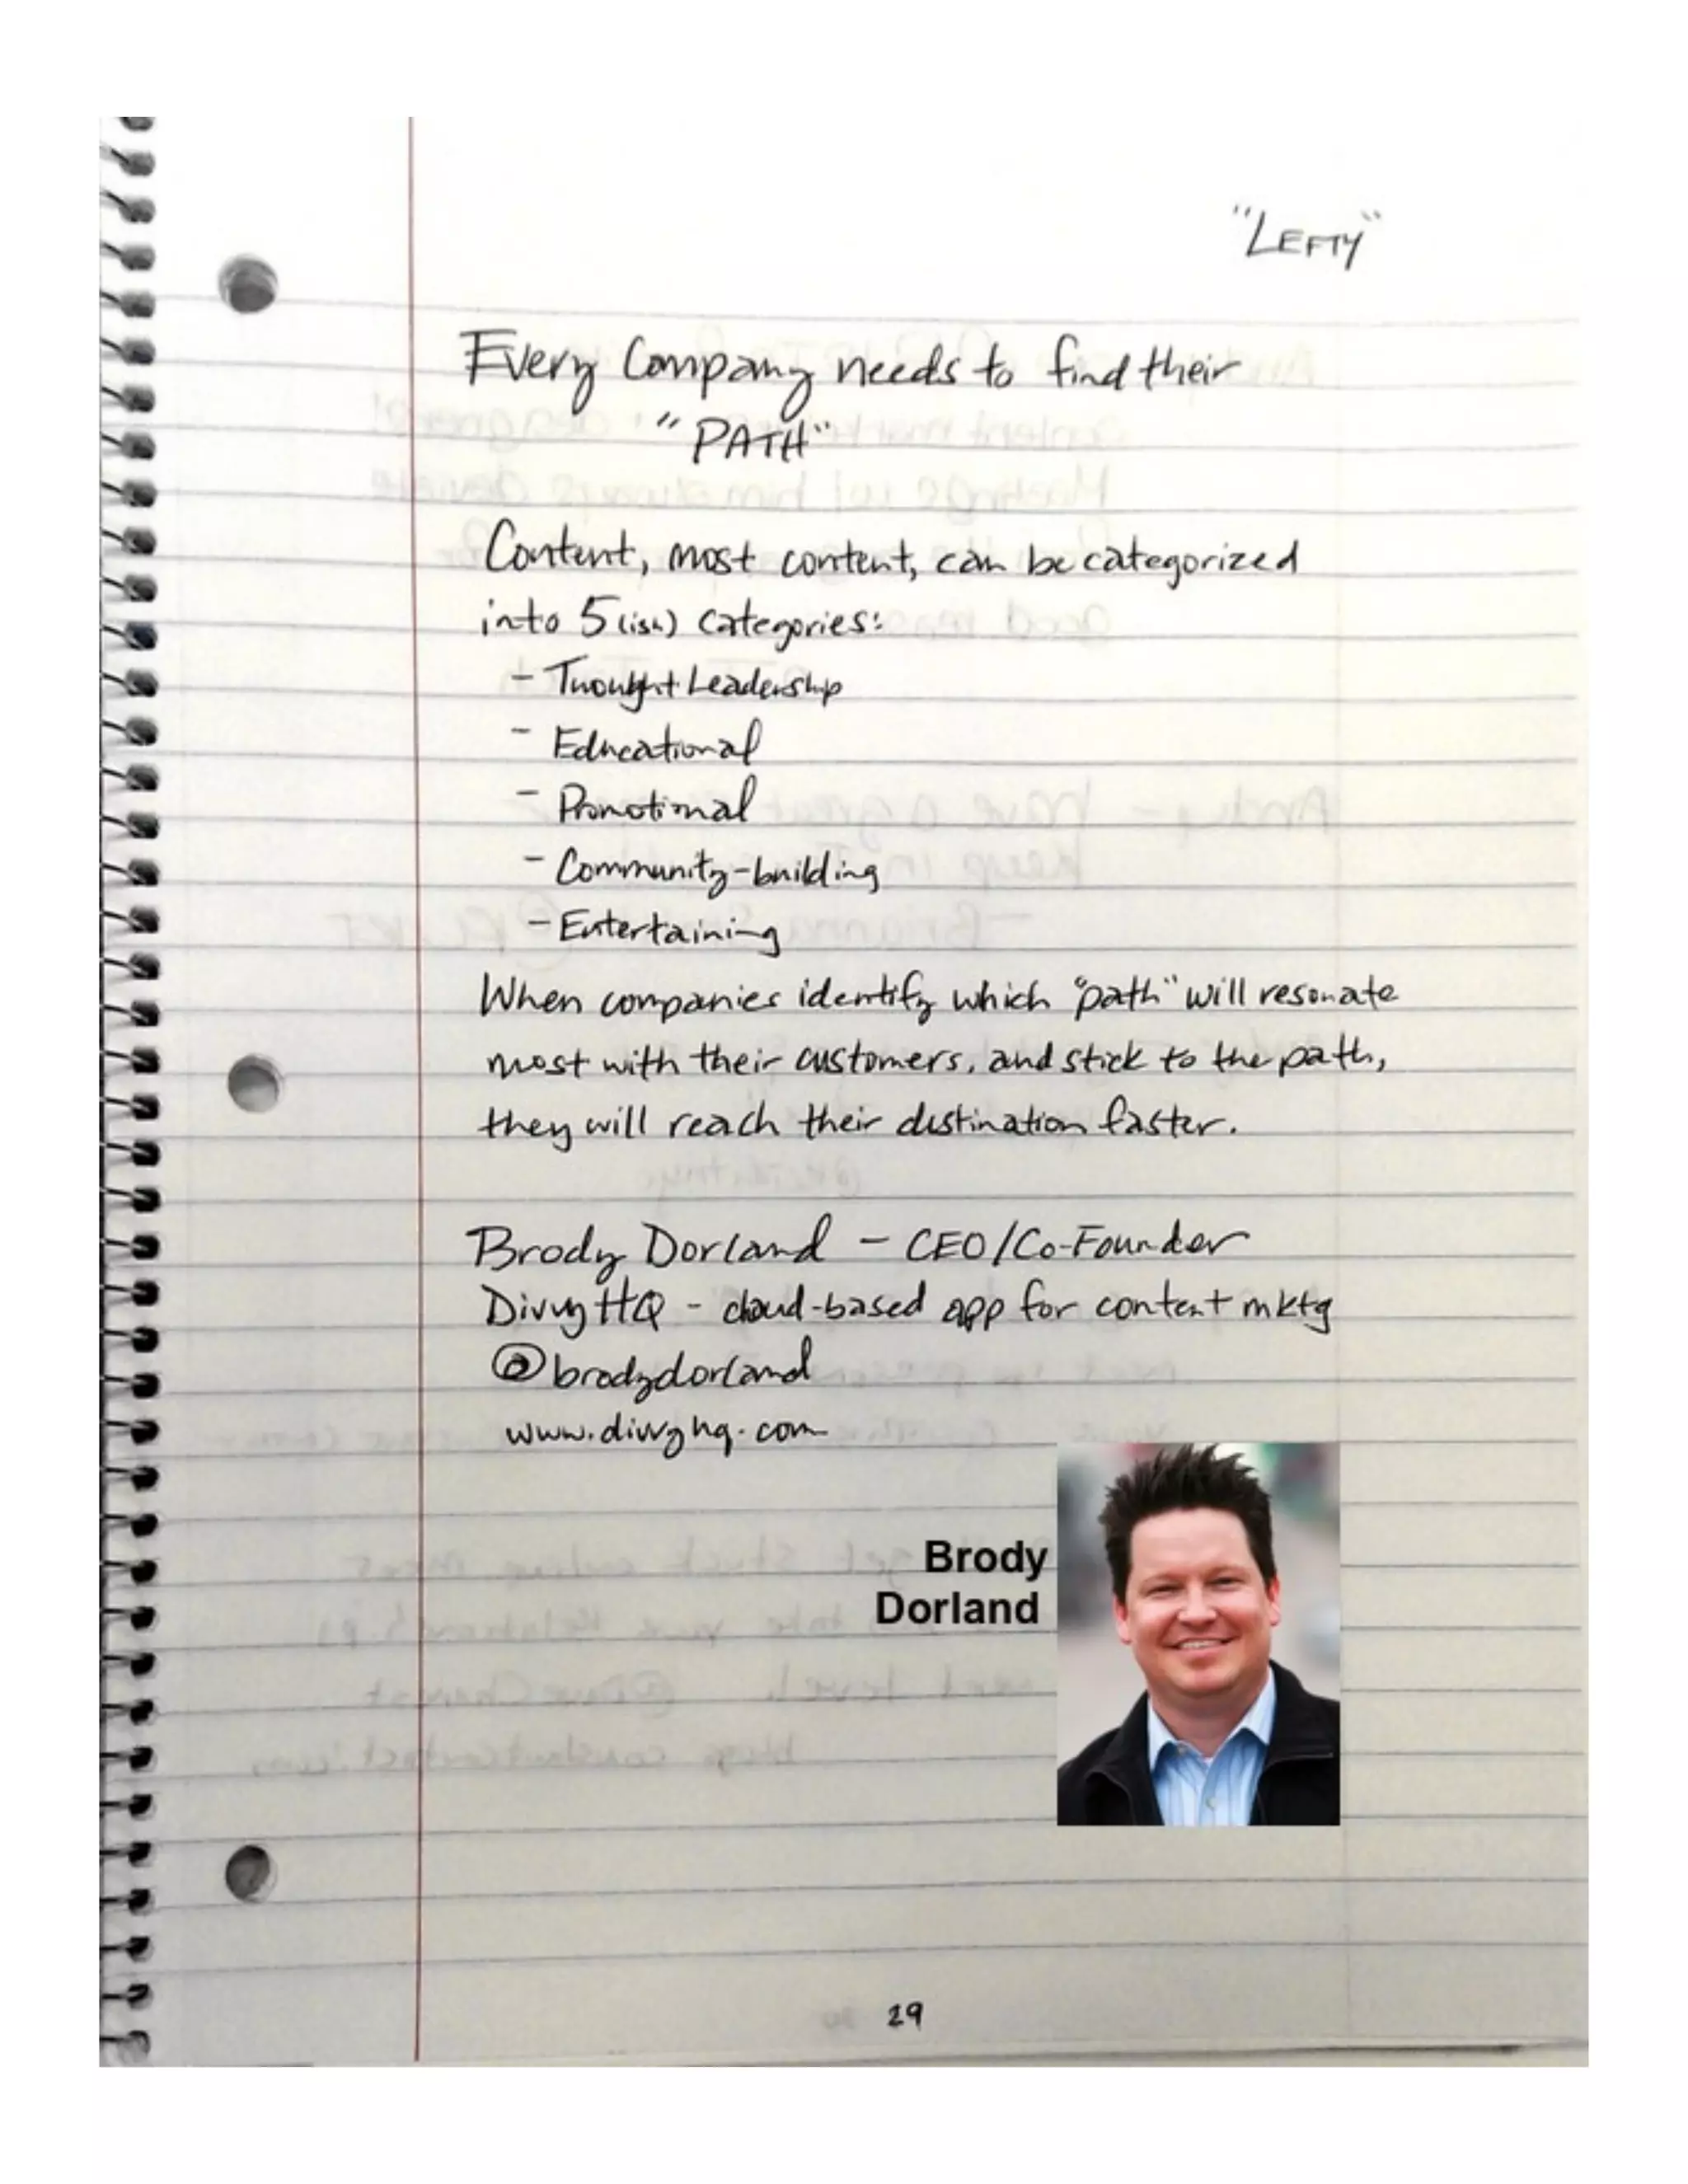 "LEFTY"
Every Company needs to find their
"PATH"
Content, most content, can be categorized
into 5 (ish) categories:
- Thought Leadership
- Educational
- Promotional
- Community-building
- Entertaining
When companies identify which "path" will resonate
most with their customers, and stick to the path,
they will reach their destination faster.
Brody Dorland - CEO/Co-Founder
DivvyHQ - cloud-based app for content mktg
@brodydorland
www.divvyhq.com
Brody
Dorland
29